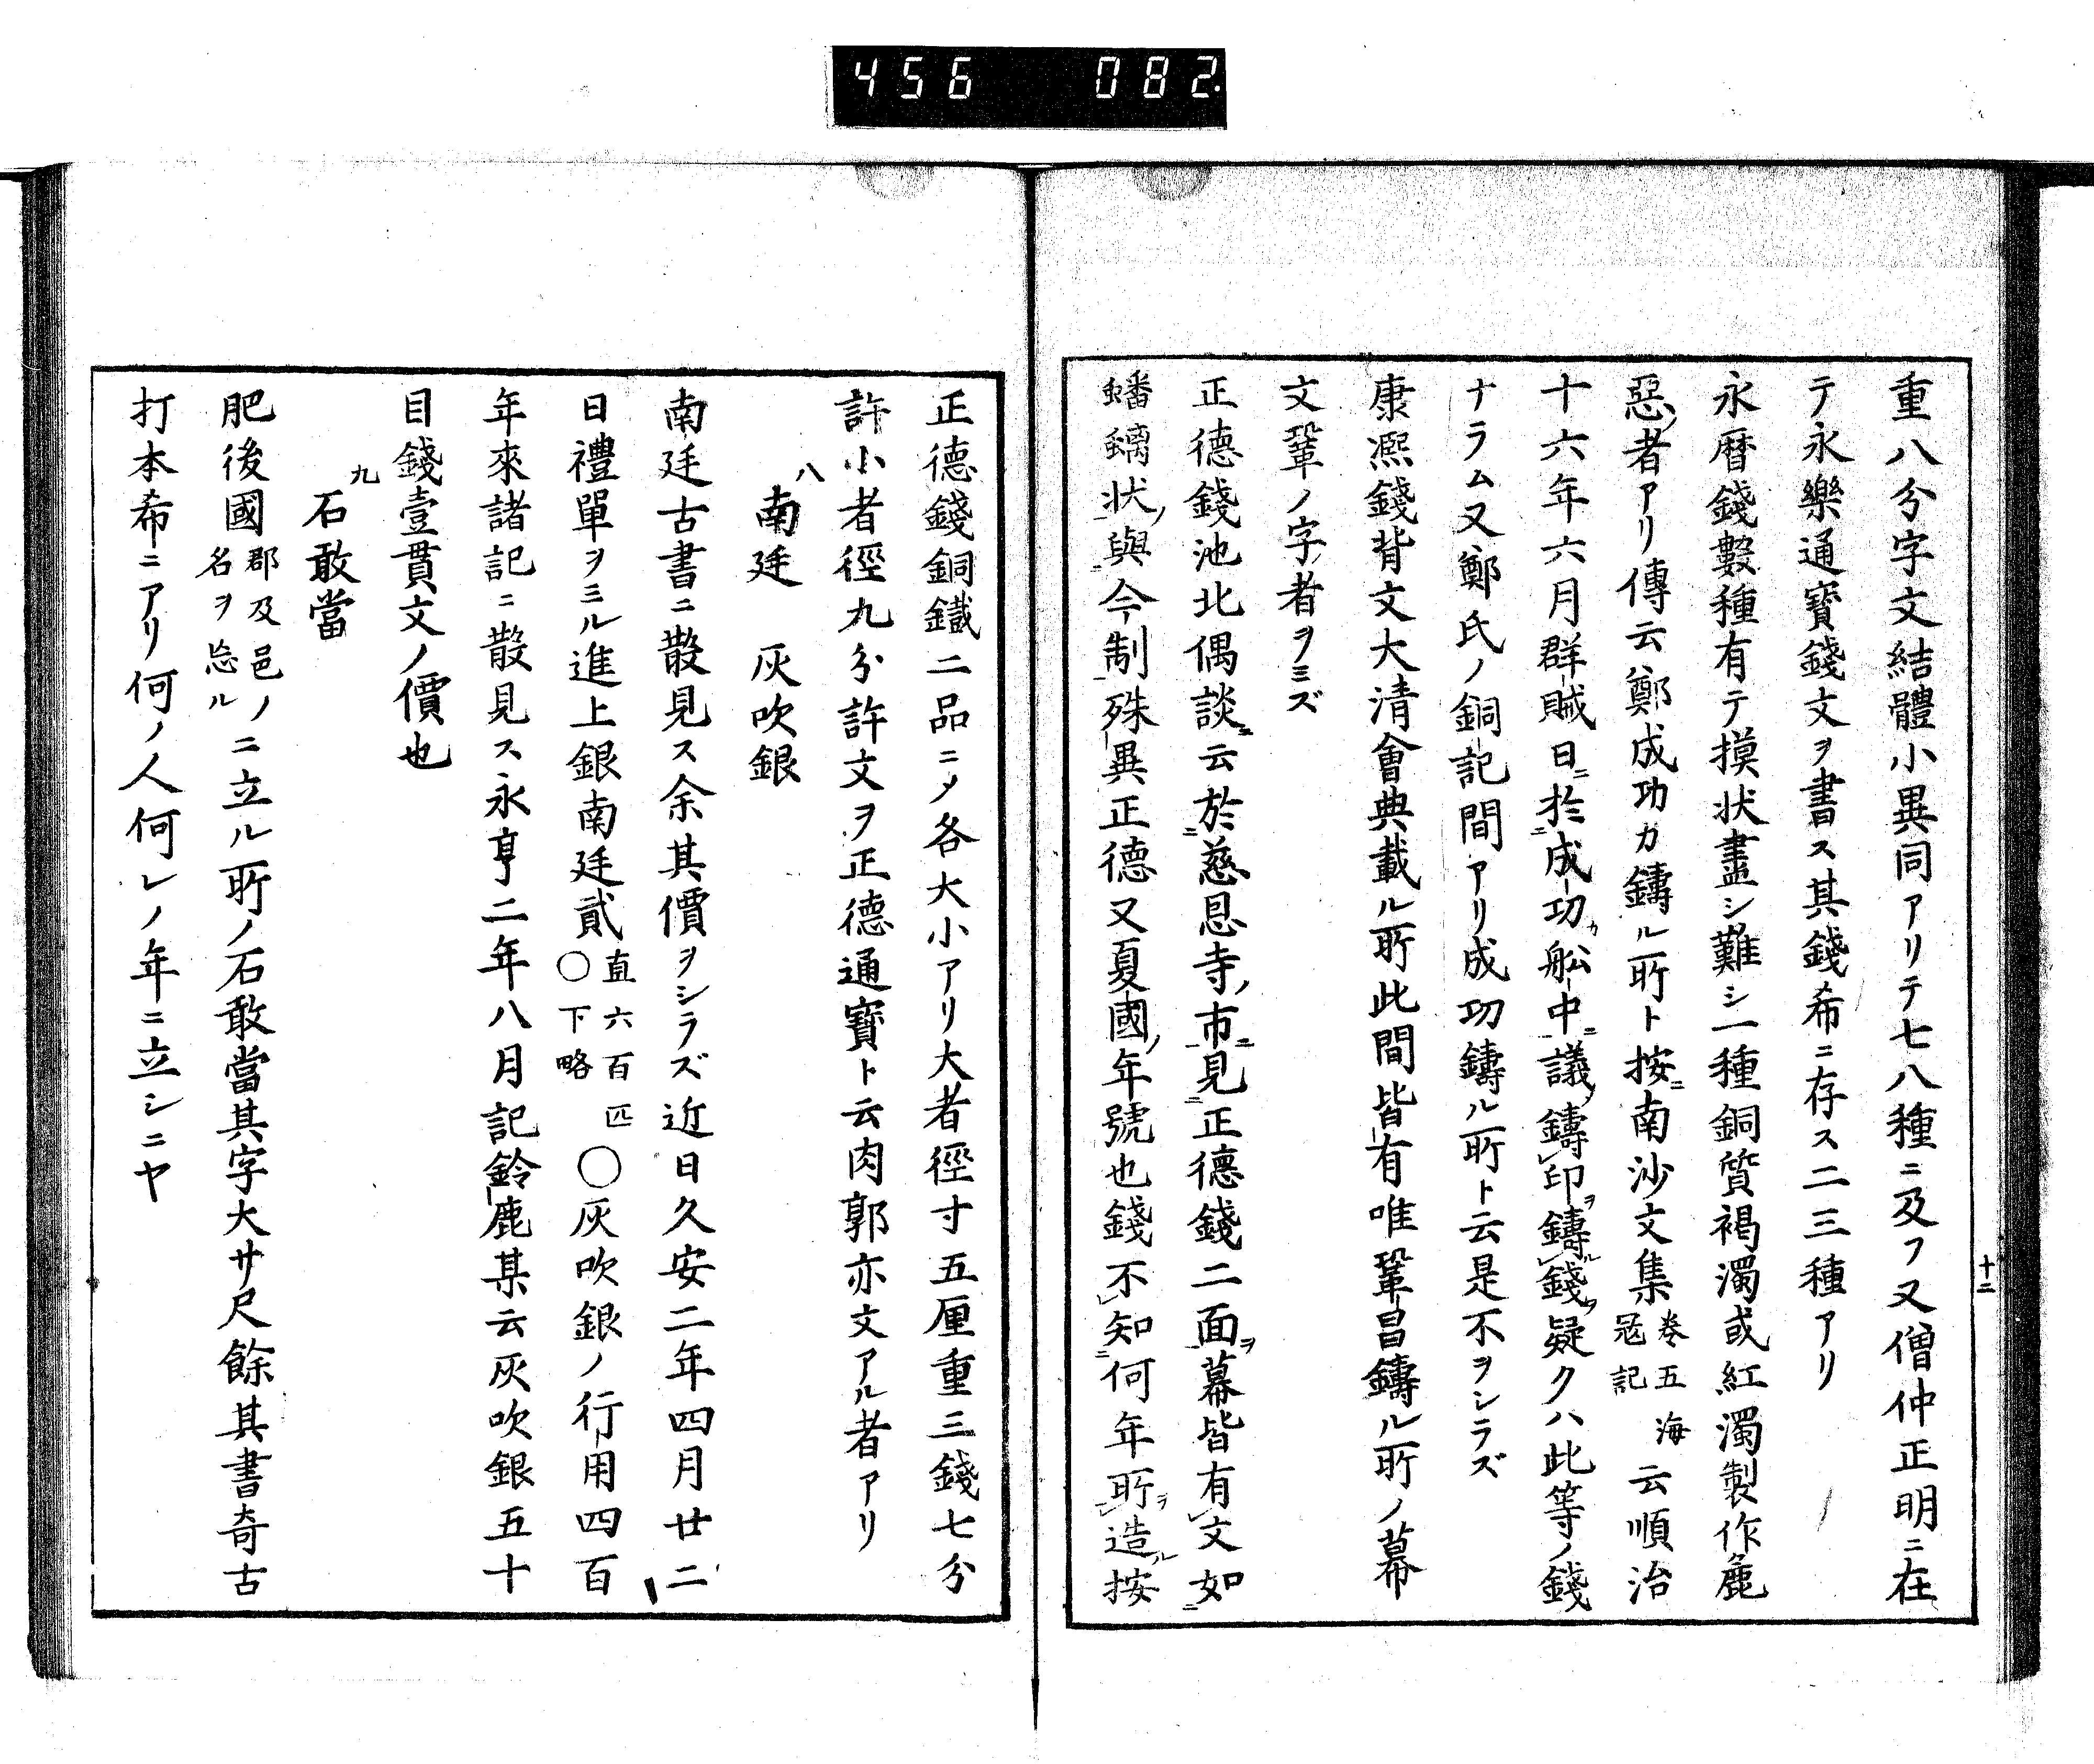 456 082.
重八分字文結體小異同アリテ七八種ニ及フ又僧仲正明ニ在
テ永樂通寶錢文ヲ書ス其錢希ニ存ス二三種アリ
永曆錢數種有テ摸状盡シ難シ一種銅質褐濁或紅濁製作麁
惡ノ者アリ傳云鄭成功カ鑄ル所ト按ニ南沙文集卷五海冦記云順治
十六年六月群賊日ニ於成功カ舩中ニ議ノ鑄印ヲ鑄ル錢ヲ疑クハ此等ノ錢
ナラム又鄭氏ノ銅記間アリ成功鑄ル所ト云是不ヲシラズ
康凞錢背文大清會典載ル所此間皆有唯鞏昌鑄ル所ノ幕
文鞏ノ字ノ者ヲミズ
正德錢池北偶談ニ云於慈恩寺ノ市ニ見正德錢二面ヲ幕皆有文如
蟠螭ノ状與今制殊異正德又夏國ノ年號也錢不知何年所ヲ造ル按
十二
正德錢銅鐵二品ニメ各大小アリ大者徑寸五厘重三錢七分
許小者徑九分許文ヲ正德通寶ト云肉郭亦文アル者アリ
八
南廷　灰吹銀
南廷古書ニ散見ス余其價ヲシラズ近日久安二年四月廿二
日禮單ヲミル進上銀南廷貳直六百匹〇下略〇灰吹銀ノ行用四百
年來諸記ニ散見ス永亨二年八月記鈴鹿某云灰吹銀五十
目錢壹貫文ノ價也
九
石敢當
肥後國郡及邑ノ名ヲ忘ルノニ立ル所ノ石敢當其字大サ尺餘其書奇古
打本希ニアリ何ノ人何レノ年ニ立シニヤ